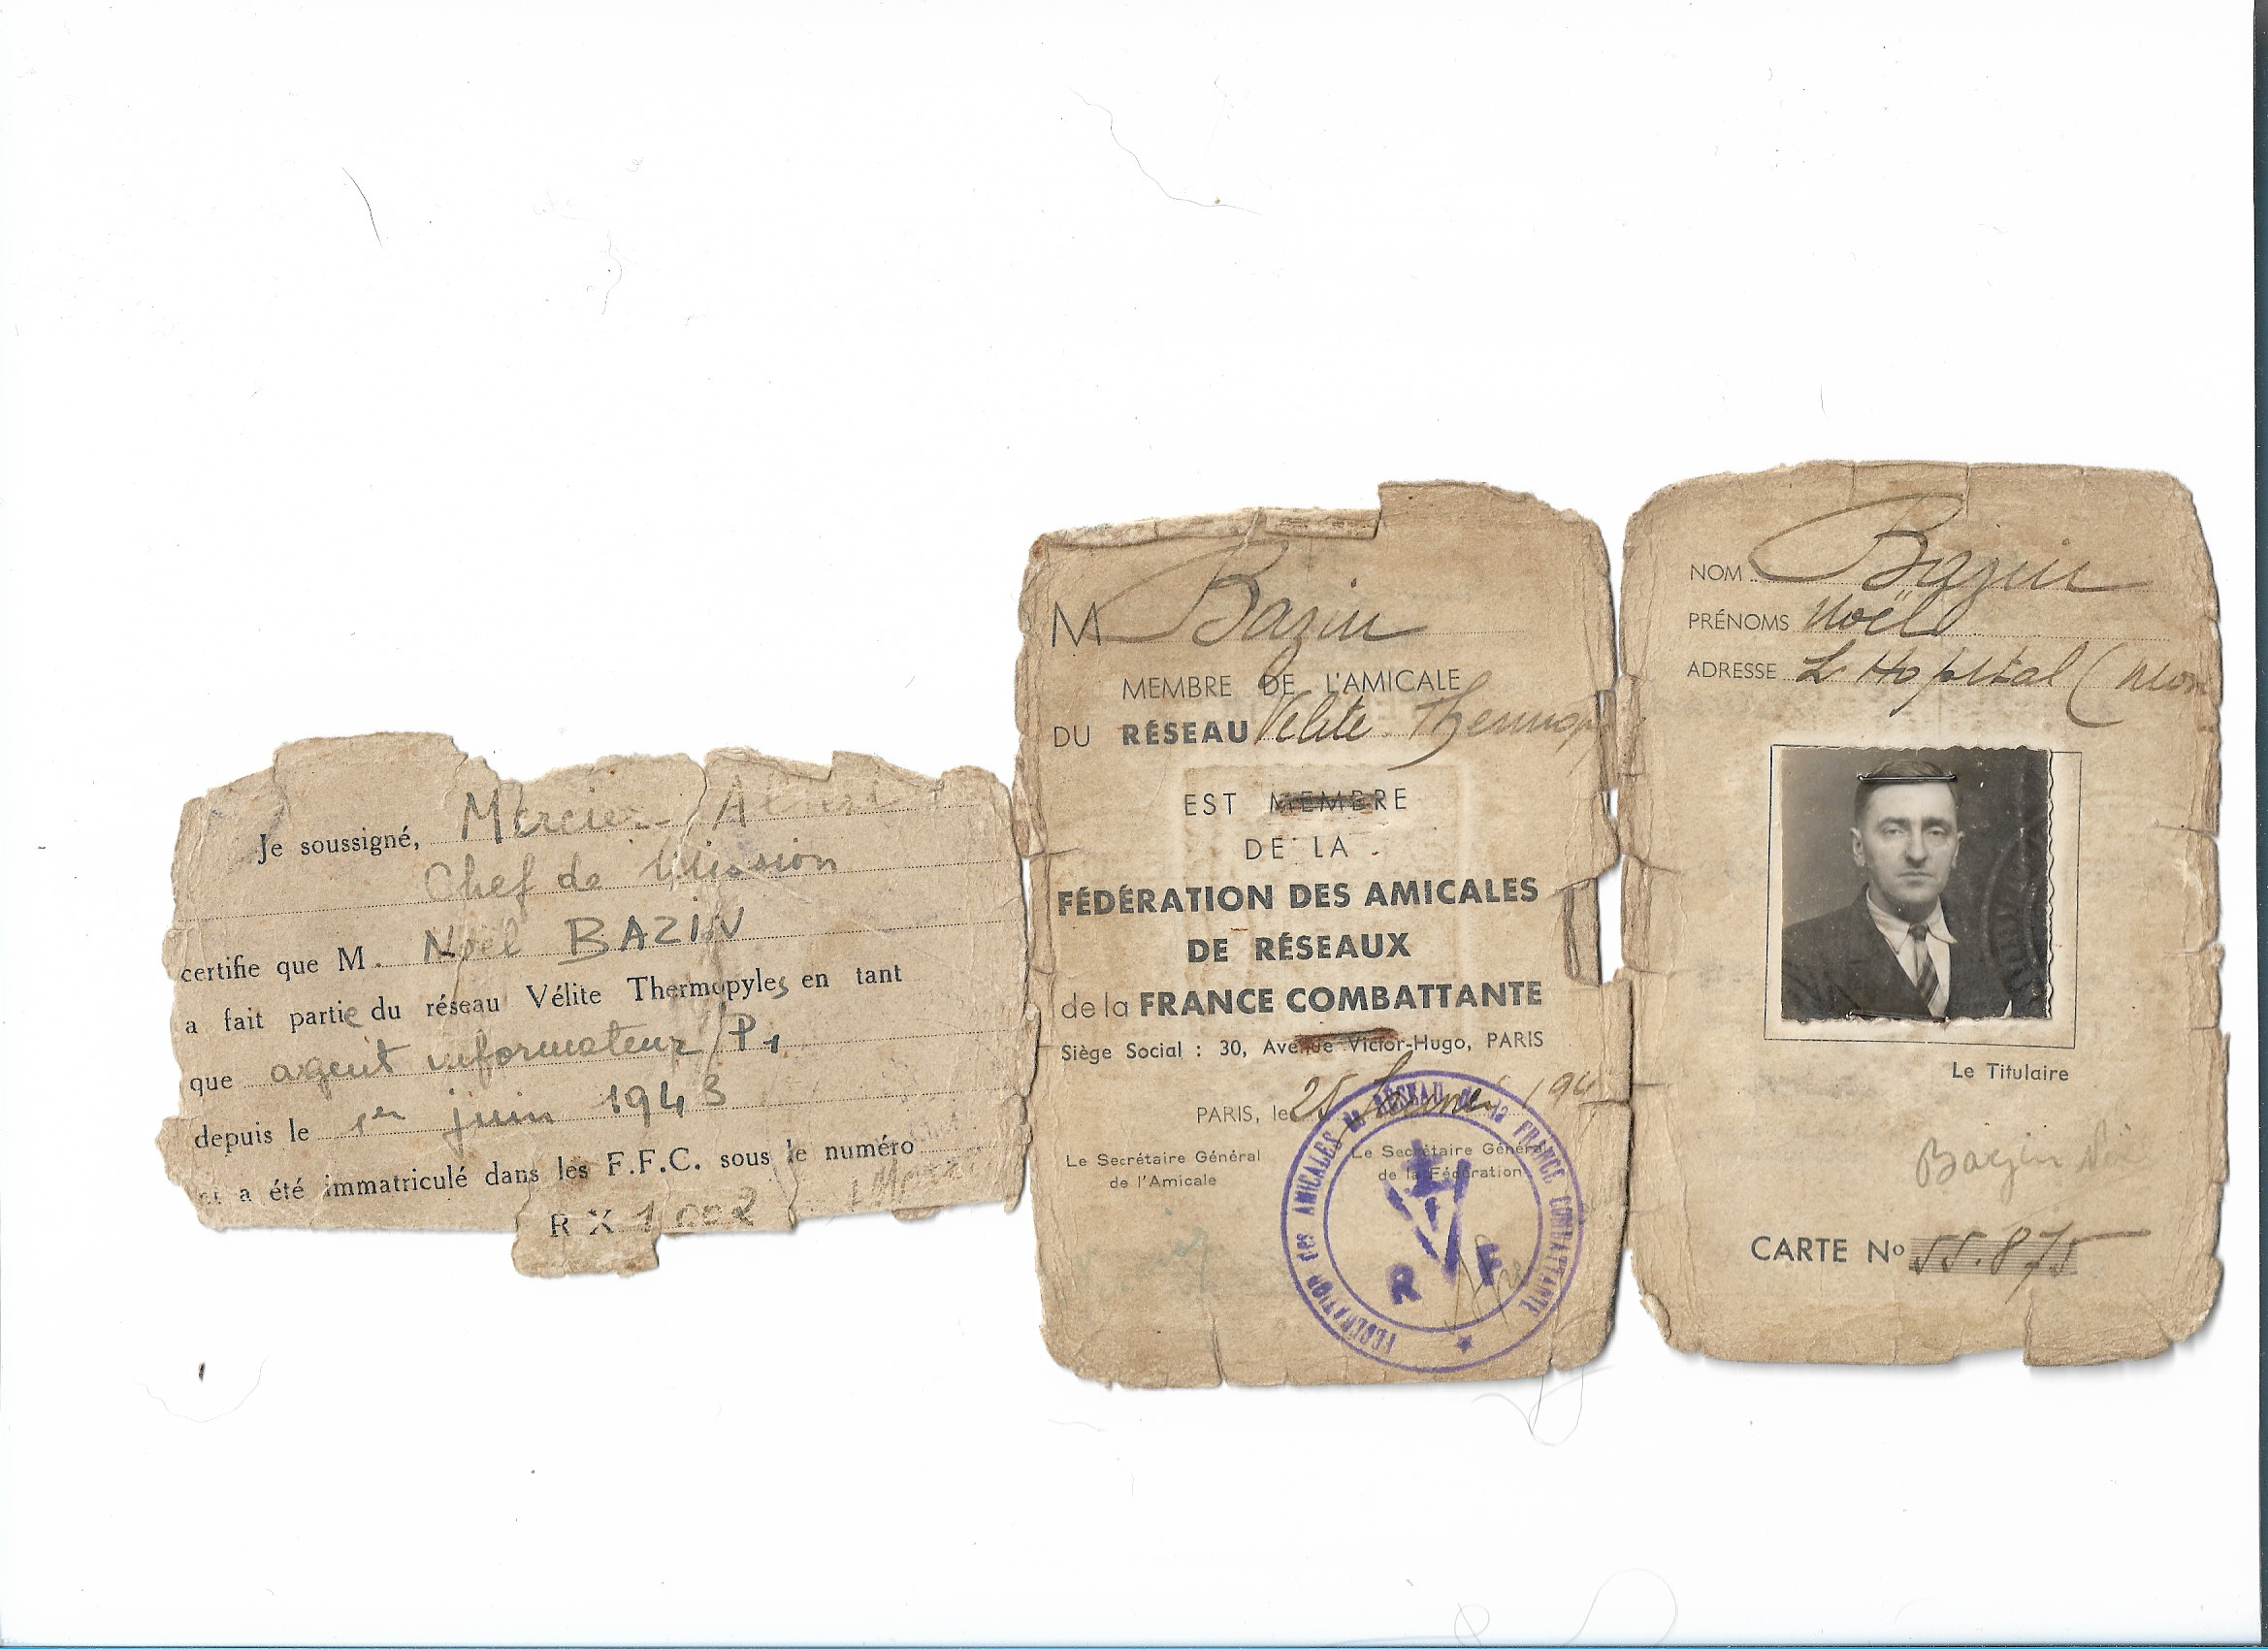 Je soussigné, Mercier Albert
Chef de Mission
certifie que M. Noël BAZIN
a fait partie du réseau Vélite Thermopyles en tant
que agent informateur P1
depuis le 1er juin 1943
et a été immatriculé dans les F.F.C. sous le numéro
R X 1002
M Bazin
MEMBRE DE L'AMICALE
DU RÉSEAU Vélite Thermop
EST MEMBRE
DE LA
FÉDÉRATION DES AMICALES
DE RÉSEAUX
de la FRANCE COMBATTANTE
Siège Social : 30, Avenue Victor-Hugo, PARIS
PARIS, le 25 194
Le Secrétaire Général
de l'Amicale
Le Secrétaire Général
de la Fédération
FÉDÉRATION des AMICALES de RÉSEAU de la FRANCE COMBATTANTE
R F
NOM Bazin
PRÉNOMS Noël
ADRESSE L'Hopital (
Le Titulaire
Bazin
CARTE No 55.875